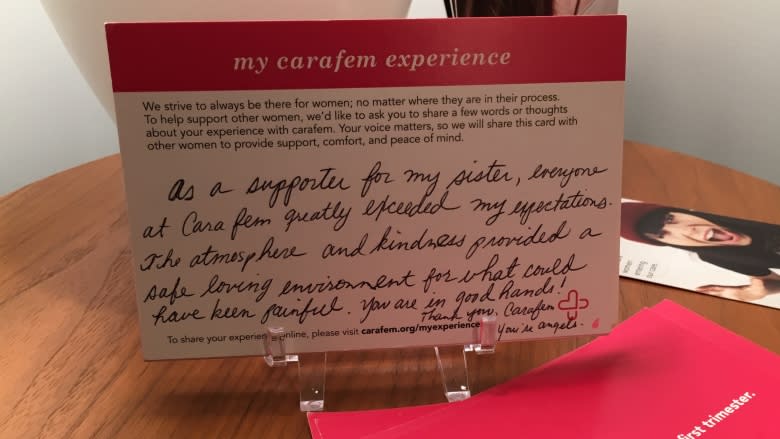 my carafem experience
We strive to always be there for women; no matter where they are in their process.
To help support other women, we'd like to ask you to share a few words or thoughts
about your experience with carafem. Your voice matters, so we will share this card with
other women to provide support, comfort, and peace of mind.
As a supporter for my sister, everyone
at Carafem greatly exceeded my expectations.
The atmosphere and kindness provided a
safe loving environment for what could
have been painful. You are in good hands!
Thank you, Carafem
You're angels.
To share your experience online, please visit carafem.org/myexperience
first trimester.